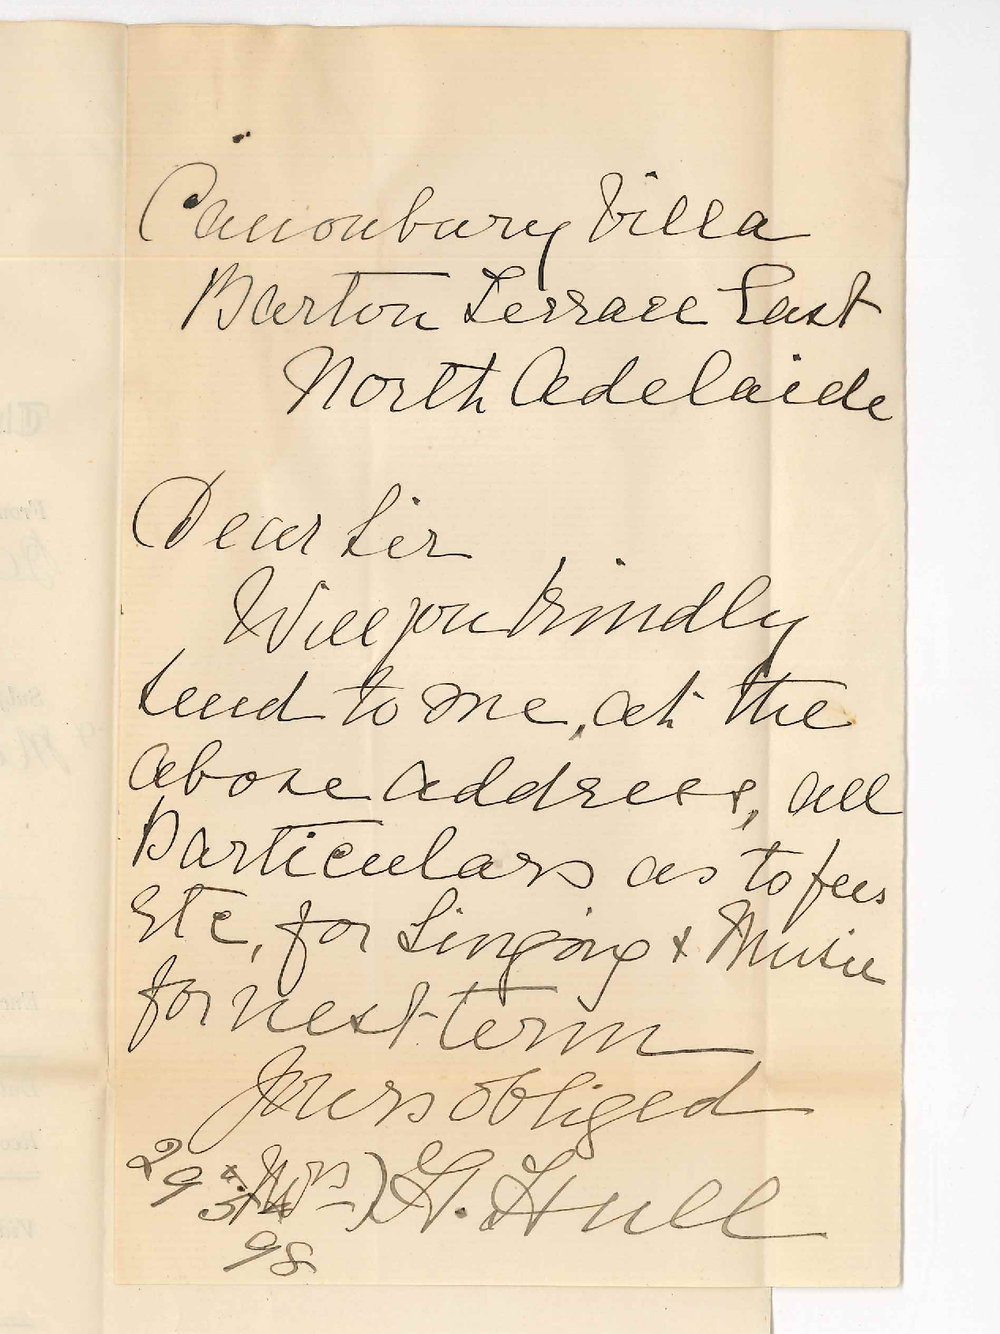 Canonbury Villa
Barton Terrace East
North Adelaide
Dear Sir
Will you kindly
send to me, at the
above address, all
Particulars as to fees
etc, for Singing & Music
for next term
Yours obliged
(Mrs) G. Hull
29
98